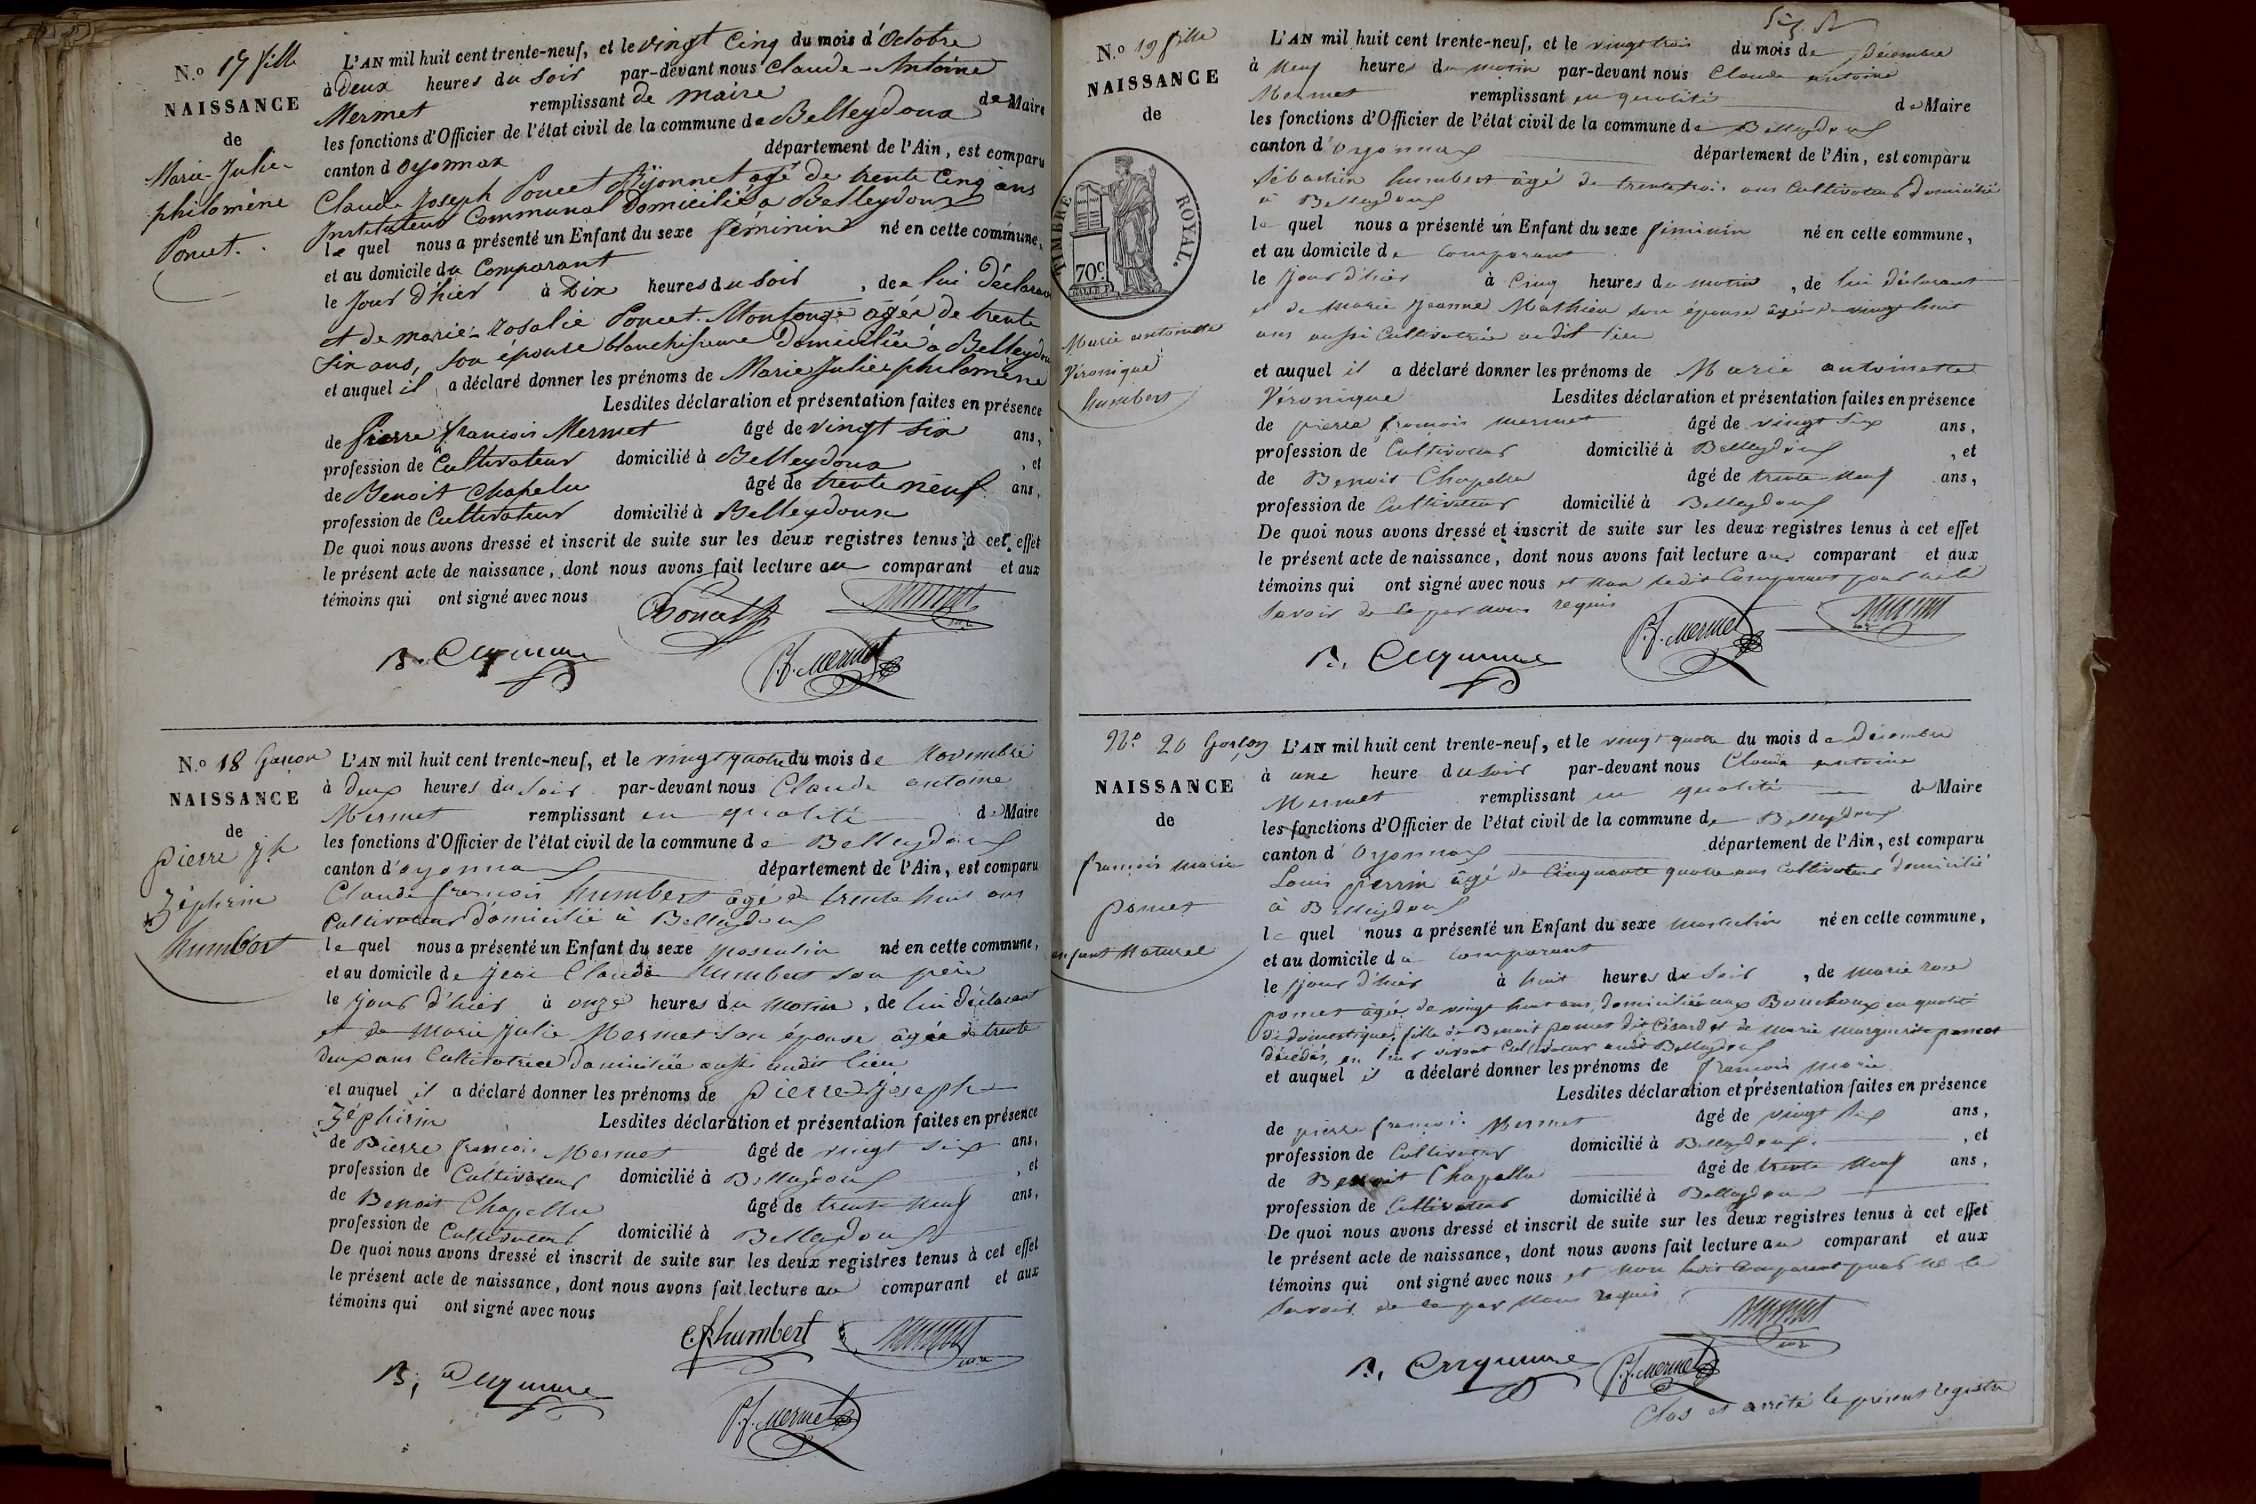 N.º 17 fille
NAISSANCE
de
Marie-Julie-
philomène
Poncet.
L'AN mil huit cent trente-neuf, et le vingt cinq du mois d'Octobre
à Deux heures du Soir par-devant nous Claude-Antoine
Mermet remplissant de maire de Maire
les fonctions d'Officier de l'état civil de la commune de Belleydoux
canton d'Oyonnax département de l'Ain, est comparu
Claude Joseph Poncet agé de trente Cinq ans
Instituteur Communal Domicilié à Belleydoux
le quel nous a présenté un Enfant du sexe féminin né en cette commune,
et au domicile du Comparant
le Jour d'hier à Dix heures du Soir, de lui Déclarant
et de marie-rosalie Poncet-Montange agée de trente
six ans, son épouse blanchisseuse Domiciliée à Belleydoux
et auquel il a déclaré donner les prénoms de Marie Julie philomène
Lesdites déclaration et présentation faites en présence
de Pierre françois Mermet âgé de vingt six ans,
profession de Cultivateur domicilié à Belleydoux, et
de Benoit Chapelu âgé de trente neuf ans,
profession de Cultivateur domicilié à Belleydoux
De quoi nous avons dressé et inscrit de suite sur les deux registres tenus à cet effet
le présent acte de naissance, dont nous avons fait lecture au comparant et aux
témoins qui ont signé avec nous
Mermet
P.f. Mermet
N.º 18 Garçon
NAISSANCE
de
pierre jh
Zéphirin
humbert
L'AN mil huit cent trente-neuf, et le vingt quatre du mois de Novembre
à Deux heures du Soir par-devant nous Claude antoine
Mermet remplissant en qualité de Maire
les fonctions d'Officier de l'état civil de la commune de Belleydoux
canton d'oyonnax département de l'Ain, est comparu
Claude françois humbert âgé de trente huit ans
Cultivateur domicilié à Belleydoux
le quel nous a présenté un Enfant du sexe masculin né en cette commune,
et au domicile de Claude humbert son père
le jour d'hier à onze heures du matin, de lui déclarant
et de Marie Julie Mermet son épouse âgée de trente
deux ans Cultivatrice domiciliée aussi audit lieu
et auquel il a déclaré donner les prénoms de pierre joseph
Zéphirin Lesdites déclaration et présentation faites en présence
de Pierre françois Mermet âgé de vingt six ans,
profession de Cultivateur domicilié à Belleydoux, et
de Benoit Chapellu âgé de trente neuf ans,
profession de Cultivateur domicilié à Belleydoux
De quoi nous avons dressé et inscrit de suite sur les deux registres tenus à cet effet
le présent acte de naissance, dont nous avons fait lecture au comparant et aux
témoins qui ont signé avec nous
humbert Mermet
P.f. Mermet
N.º 19 fille
NAISSANCE
de
TIMBRE ROYAL.
70c.
Marie antoinette
Véronique
humbert
L'AN mil huit cent trente-neuf, et le vingt trois du mois de Décembre
à Neuf heures du matin par-devant nous Claude antoine
Mermet remplissant en qualité de Maire
les fonctions d'Officier de l'état civil de la commune de Belleydoux
canton d'Oyonnax département de l'Ain, est comparu
Sébastien humbert âgé de trente trois ans Cultivateur domicilié
à Belleydoux
le quel nous a présenté un Enfant du sexe féminin né en cette commune,
et au domicile du comparant
le Jour d'hier à Cinq heures du matin, de lui déclarant
et de marie jeanne Mathieu son épouse âgée de vingt huit
ans aussi Cultivatrice audit lieu
et auquel il a déclaré donner les prénoms de Marie antoinette
Véronique Lesdites déclaration et présentation faites en présence
de pierre françois mermet âgé de vingt six ans,
profession de Cultivateur domicilié à Belleydoux, et
de Benoit Chapellu âgé de trente neuf ans,
profession de Cultivateur domicilié à Belleydoux
De quoi nous avons dressé et inscrit de suite sur les deux registres tenus à cet effet
le présent acte de naissance, dont nous avons fait lecture au comparant et aux
témoins qui ont signé avec nous et non ledit Comparant pour ne le
Savoir de ce par nous requis
P.f. Mermet Mermet
Nº 20 Garçon
NAISSANCE
de
françois marie
poncet
enfant Naturel
L'AN mil huit cent trente-neuf, et le vingt quatre du mois de décembre
à une heure du soir par-devant nous Claude antoine
Mermet remplissant en qualité de Maire
les fonctions d'Officier de l'état civil de la commune de Belleydoux
canton d'Oyonnax département de l'Ain, est comparu
Louis perrin âgé de Cinquante quatre ans Cultivateur domicilié
à Belleydoux
le quel nous a présenté un Enfant du sexe masculin né en cette commune,
et au domicile du comparant
le jour d'hier à huit heures du soir, de marie rose
poncet âgée de vingt huit ans, domiciliée aux Bouchoux en qualité
de domestique, fille de Benoit poncet dit Césard et de marie marguerite poncet
décédés, en leur vivant Cultivateur audit Belleydoux
et auquel il a déclaré donner les prénoms de françois marie
Lesdites déclaration et présentation faites en présence
de pierre françois Mermet âgé de vingt six ans,
profession de Cultivateur domicilié à Belleydoux, et
de Benoit Chapellu âgé de trente neuf ans,
profession de Cultivateur domicilié à Belleydoux
De quoi nous avons dressé et inscrit de suite sur les deux registres tenus à cet effet
le présent acte de naissance, dont nous avons fait lecture au comparant et aux
témoins qui ont signé avec nous et non ledit comparant pour ne le
Savoir de ce par Nous requis
Mermet
P.f. Mermet
Clos et arrêté le présent registre